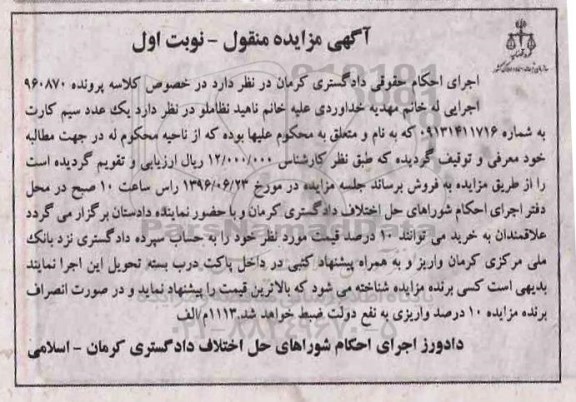 آگهی مزایده منقول - نوبت اول
اجرای احکام حقوقی دادگستری کرمان در نظر دارد در خصوص کلاسه پرونده ۹۶۰۸۷۰
اجرایی له خانم مهدیه خداوردی علیه خانم ناهید نظاملو در نظر دارد یک عدد سیم کارت
به شماره ۰۹۱۳۱۴۱۱۷۱۶ که به نام و متعلق به محکوم علیها بوده که از ناحیه محکوم له در جهت مطالبه
خود معرفی و توقیف گردیده که طبق نظر کارشناس ۱۲/۰۰۰/۰۰۰ ریال ارزیابی و تقویم گردیده است
را از طریق مزایده به فروش برساند جلسه مزایده در مورخ ۱۳۹۶/۰۶/۲۳ راس ساعت ۱۰ صبح در محل
دفتر اجرای احکام شوراهای حل اختلاف دادگستری کرمان و با حضور نماینده دادستان برگزار می گردد
علاقمندان به خرید می توانند ۱۰ درصد قیمت مورد نظر خود را به حساب سپرده دادگستری نزد بانک
ملی مرکزی کرمان واریز و به همراه پیشنهاد کتبی در داخل پاکت درب بسته تحویل این اجرا نمایند
بدیهی است کسی برنده مزایده شناخته می شود که بالاترین قیمت را پیشنهاد نماید و در صورت انصراف
برنده مزایده ۱۰ درصد واریزی به نفع دولت ضبط خواهد شد.۱۱۱۳م/الف
دادورز اجرای احکام شوراهای حل اختلاف دادگستری کرمان - اسلامی
ParsNamadData
۰۲۱-۸۸۳۴۹۶۷۰-۵